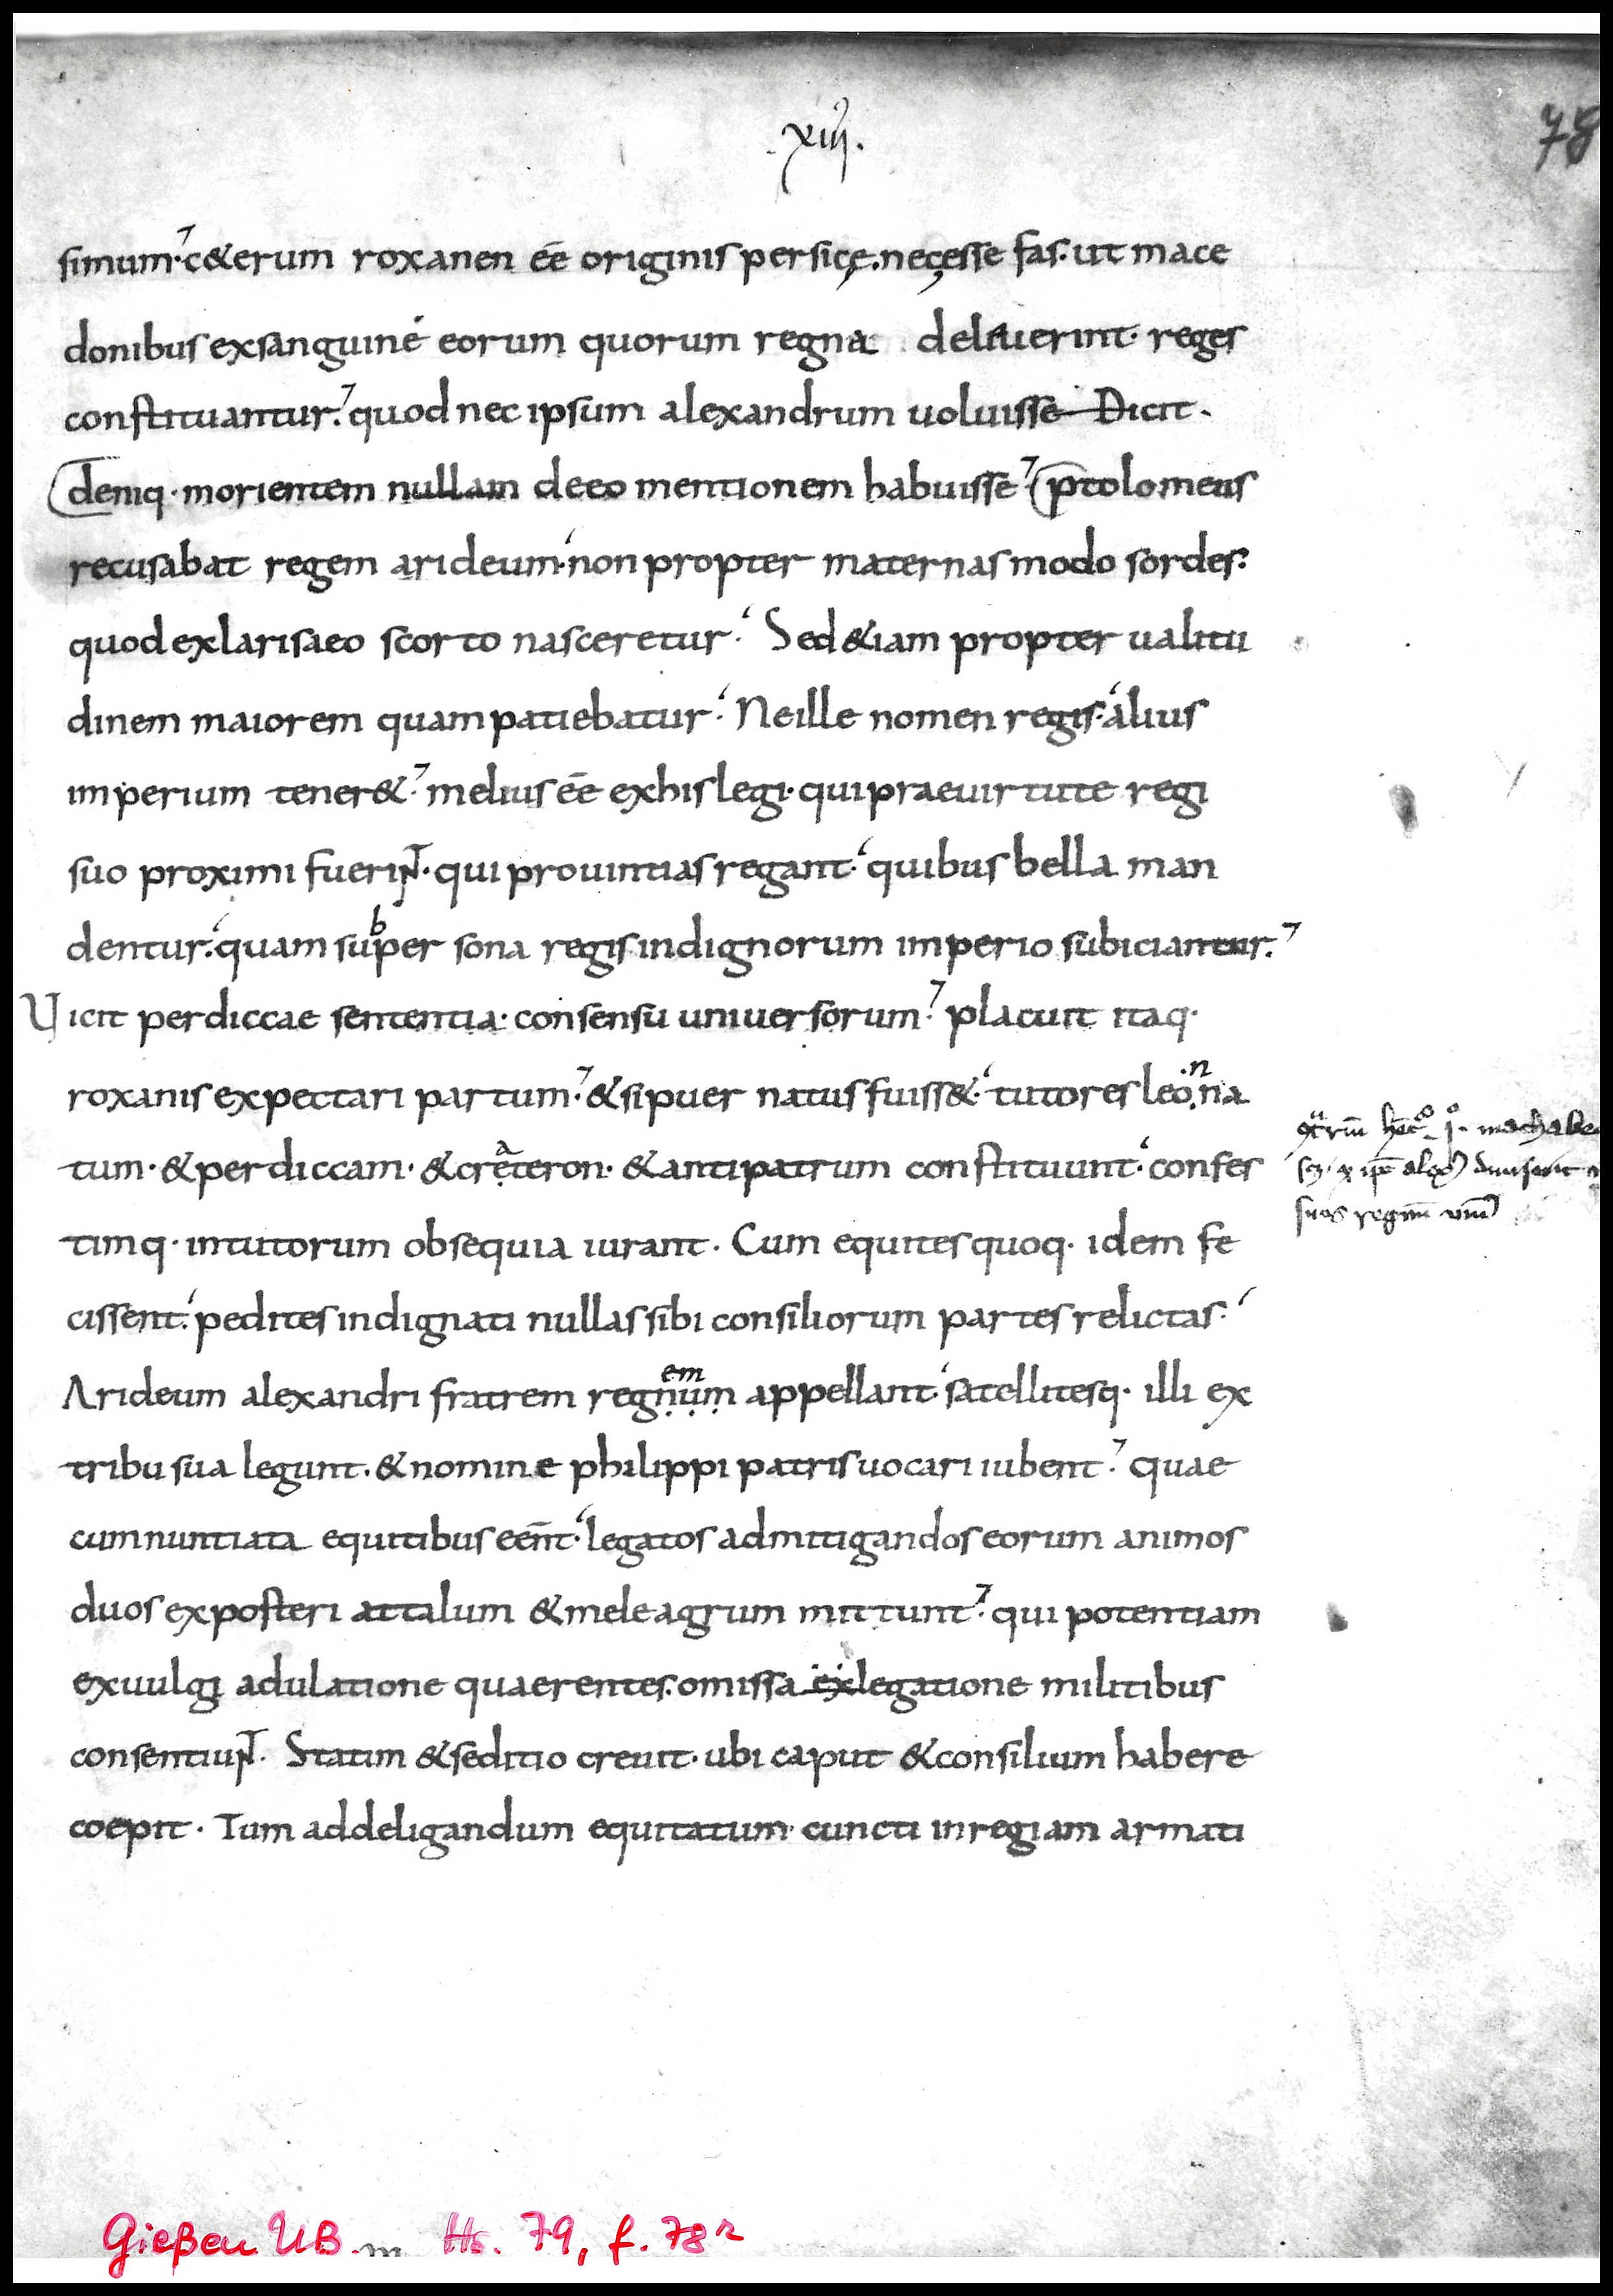 .xiij.
78
simum· c&erum roxanen eē originis persicę. neçesse fas. ut mace
donibus exsanguine eorum quorum regna deleuerint· reges
constituantur. quod nec ipsum alexandrum uoluisse Dicit.
deniq· morientem nullam deeo mentionem habuisse. ptolomeus
recusabat regem arideum· non propter maternas modo sordes:
quod exlarisaeo scorto nasceretur. Sed &iam propter ualitu
dinem maiorem quam patiebatur. Ne ille nomen regis· alius
imperium tener&. melius eē exhis legi· qui praeuirtute regi
suo proximi fuerint. qui prouintias regant. quibus bella man
b
dentur. quam super sona regis indignorum imperio subiciantur.
Uicit perdiccae sententia· consensu uniuersorum. placuit itaq·
n
roxanis expectari partum. & si puer natus fuiss&. tutores leona
a
tum· & perdiccam· & creteron· & antipatrum constituunt. confes
timq· intutorum obsequia iurant. Cum equites quoq· idem fe
cissent. pedites indignati nullas sibi consiliorum partes relictas.
em
Arideum alexandri fratrem regnum appellant. satellitesq· illi ex
tribu sua legunt. & nomine philippi patris uocari iubent. quae
cum nuntiata equitibus eēnt. legatos admitigandos eorum animos
duos exposteri attalum & meleagrum mittunt. qui potentiam
exuulgi adulatione quaerentes. omissa ex legatione militibus
consentiunt. Statim & seditio creuit. ubi caput & consilium habere
coepit. Tum addeligandum equitatum cuncti inregiam armati
machabe
suos regnū
Gießen UB. Hs. 79, f. 78r